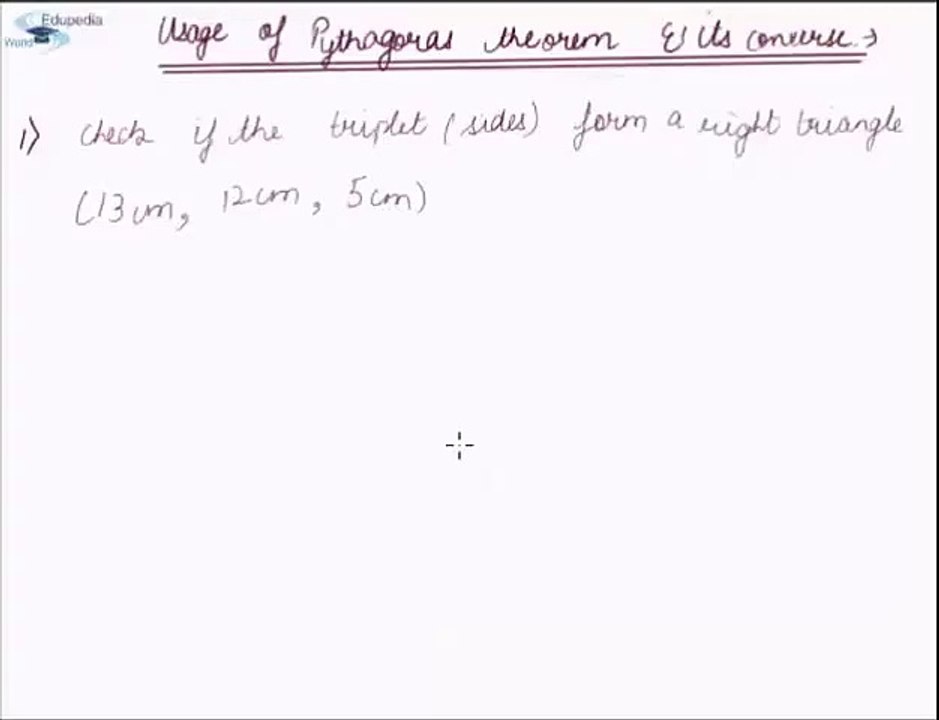 Edupedia
World
Usage of Pythagoras theorem & its converse →
1) Check if the triplet (sides) form a right triangle
(13 cm, 12 cm, 5 cm)